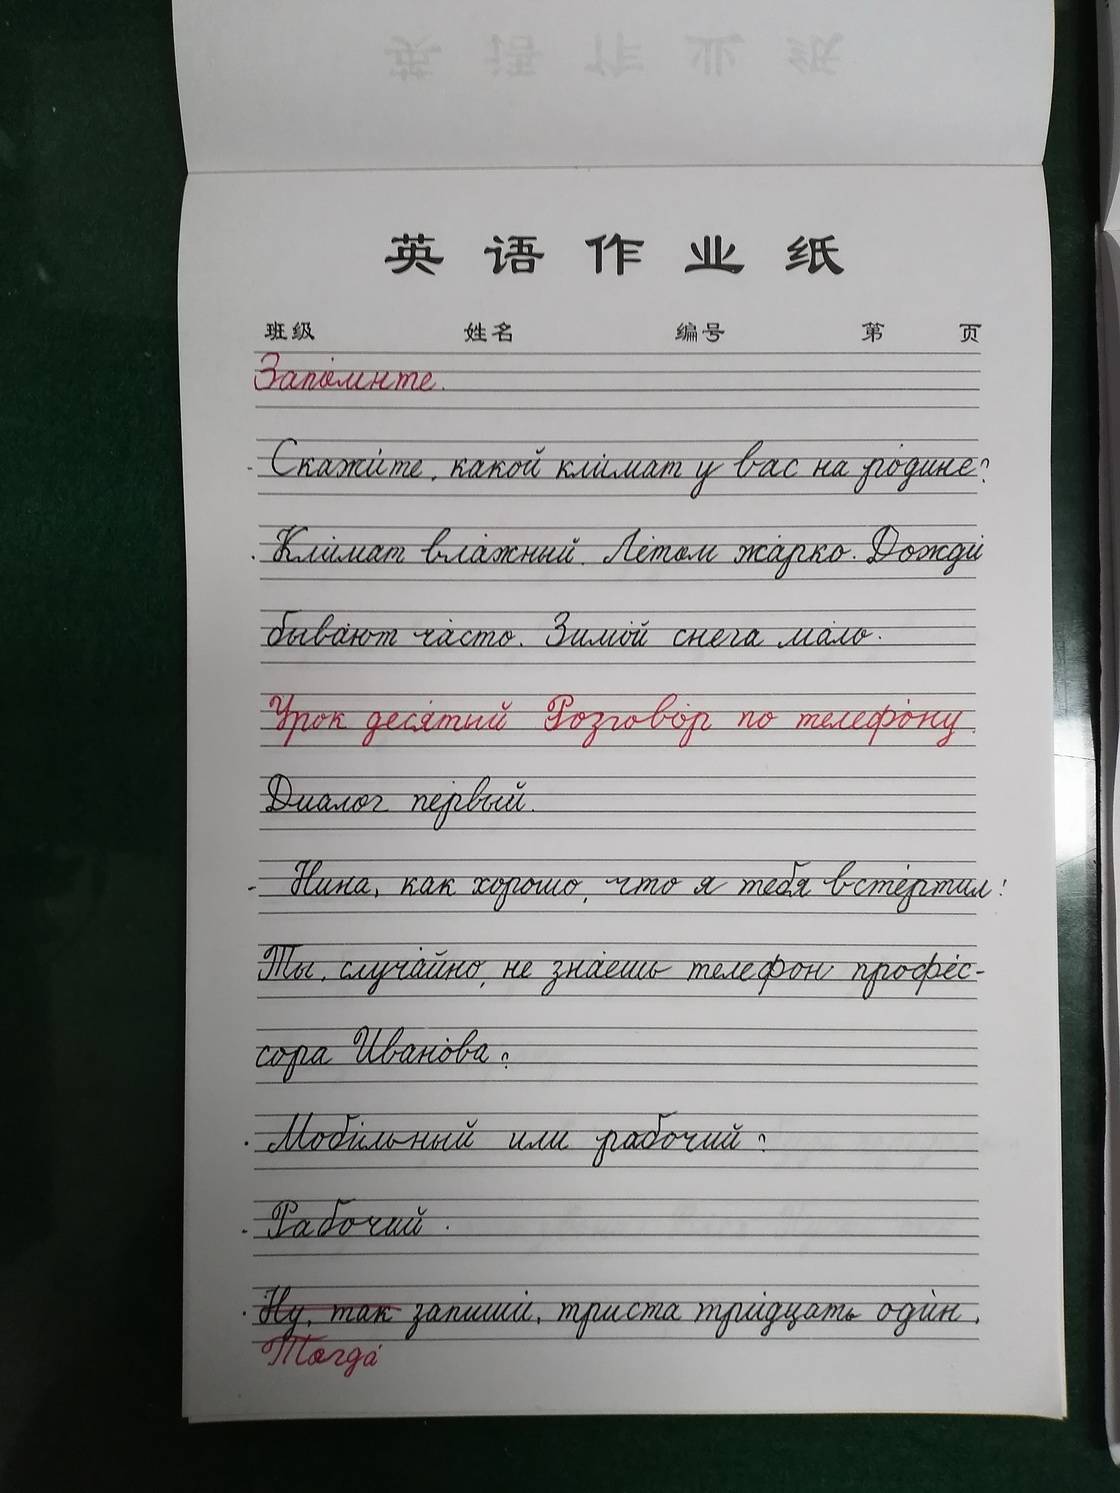 英语作业纸
班级 姓名 编号 第 页
Запо́мнте.
- Скажи́те, какой кли́мат у вас на ро́дине?
- Кли́мат вла́жный. Ле́том жа́рко. Дожди́
быва́ют ча́сто. Зимо́й снега ма́ло.
Урок деся́тый Розгово́р по телефо́ну.
Диалог пе́рвый.
- Нина, как хорошо, что я тебя встре́ртил!
Ты, случа́йно, не зна́ешь телефон профе́с-
сора Ивано́ва?
- Моби́льный или рабочий?
- Рабочий.
- Ну, так запиши́, триста три́дцать оди́н.
Тогда́